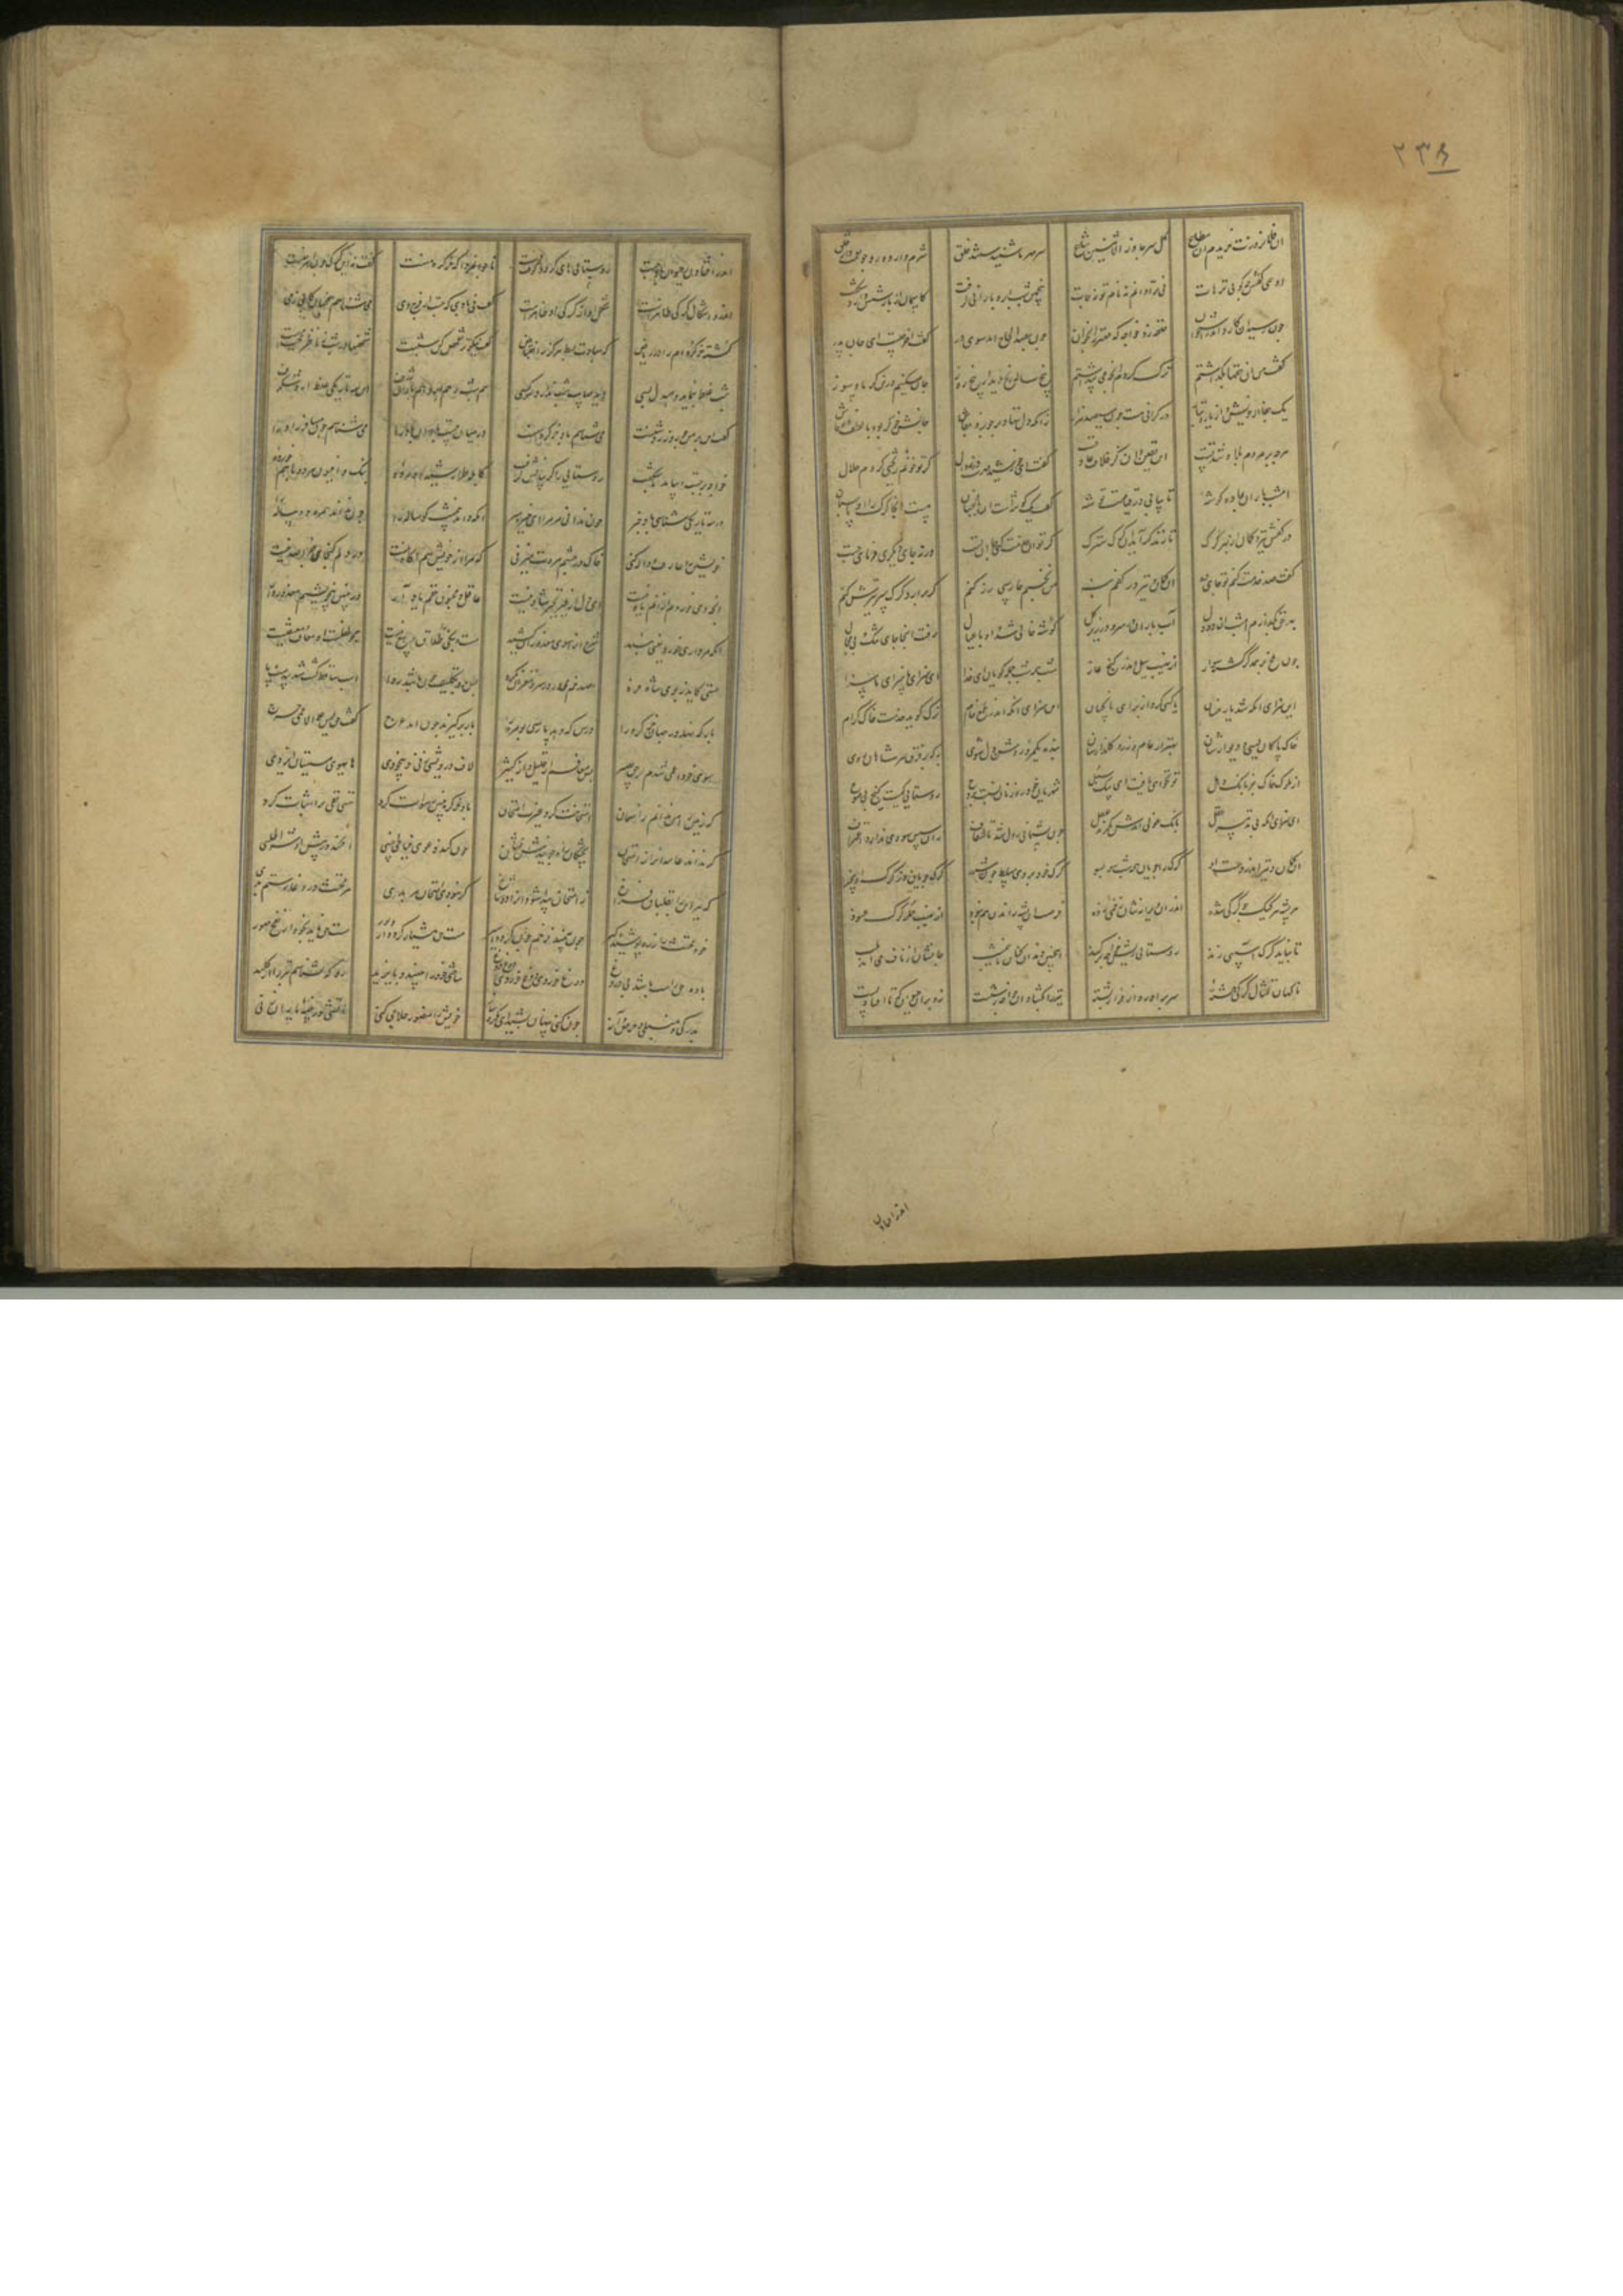 ۲۳۶
آن فلان روزت خریدم آن متاع کل سر جاوز الاثنین شاع سر مهر ما شنیدستند خلق شرم دارد رو چو نعمت خورد حلق
او همی گفتش چه گویی ترهات نی ترا دانم نه نام تو نه جات پنجمین شب ابر و بارانی گرفت کاسمان از بارشش دارد شگفت
چون رسید آن کارد اندر استخوان حلقه زد خواجه که مهتر را بخوان چون بصد الحاح آمد سوی در گفت آخر چیست ای جان پدر
گفت من آن حقها بگذاشتم ترک کردم آنچه می پنداشتم پنج ساله رنج دیدم پنج روز جان مسکینم درین گرما و سوز
یک جفا از خویش و از یار و تبار در گرانی هست چون سیصد هزار زانکه دل ننهاد بر جور و جفاش جانش خوگر بود با لطف و وفاش
هرچه بر مردم بلا و شدتست این یقین دان کز خلاف عادتست گفت ای خورشید مهرت در زوال گر تو خونم ریختی کردم حلال
امشب باران بما ده گوشه تا بیابی در قیامت توشه گفت یک گوشه است آن باغبان هست اینجا گرگ را او پاسبان
در کفش تیر و کمان از بهر گرگ تا زند گر آید آن گرگ سترگ گر تو آن خدمت کنی جا آن تست ورنه جای دیگری فرمای جست
گفت صد خدمت کنم تو جای ده آن کمان و تیر در کفم بنه من نخسپم حارسی رز کنم گر برآرد گرگ سر تیرش زنم
بهر حق مگذارم امشب ای دودل آب باران بر سر و در زیر گل گوشه خالی شد و او با عیال رفت آنجا جای تنگ و بی مجال
چون ملخ بر همدگر گشته سوار از نهیب سیل اندر کنج غار شب همه شب جمله گویان ای خدا این سزای ما سزای ما سزا
این سزای آنکه شد یار خسان یا کسی کرد از برای ناکسان این سزای آنکه اندر طمع خام ترک گوید خدمت خاک کرام
خاک پاکان لیسی و دیوارشان بهتر از عام و رز و گلزارشان بنده یک مرد روشن دل شوی به که بر فرق سر شاهان روی
از ملوک خاک جز بانگ دهل تو نخواهی یافت ای پیک سبل شهریان خود رهزنان نسبت بروح روستایی کیست گیج و بی فتوح
این سزای آنکه بی تدبیر عقل بانگ غولی آمدش بگزید نقل چون پشیمانی ز دل شد تا شغاف زان سپس سودی ندارد اعتراف
آن کمان و تیر اندر دست او گرگ را جویان همه شب سو بسو گرگ خود بر وی مسلط چون شرر گرگ جویان وز گرگ او بیخبر
هر پشه هر کیک چون گرگی شده اندر آن ویرانه شان زخمی زده فرصت آن پشه راندن هم نبود از نهیب حمله گرگ عنود
تا نباید گرگ آسیبی زند روستایی ریش خواجه بر کند اینچنین دندان کنان تا نیمشب جانشان از ناف می آمد بلب
ناگهان تمثال گرگ هشته سر برآورد از فراز پشته تیر را بگشاد آن خواجه ز شست زد بر آن حیوان که تا افتاد پست
اندر افتادن
اندر افتادن ز حیوان باد جست روستایی های کرد و کوفت دست ناجوانمردا که خرکره منست گفت نه این گرگ چون اهرمنست
اندرو اشکال گرگی ظاهرست شکل او از گرگی او مخبرست گفت نی بادی که جست از فرج وی می شناسم همچنان کابی ز می
کشته خرکره ام را در ریاض که مبادت بسط هرگز ز انقباض گفت نیکوتر تفحص کن شبست شخصها در شب ز ناظر محجبست
شب غلط بنماید و مبدل بسی دید صایب شب ندارد هر کسی هم شب و هم ابر و هم باران ژرف این سه تاریکی غلط آرد شگرف
گفت آن بر من چو روز روشنست می شناسم باد خرکره منست در میان بیست باد آن باد را می شناسم چون مسافر زاد را
خواجه برجست و بیامد ناشکفت روستایی را گریبانش گرفت کابله طرار شید آورده بنگ و افیون هر دو با هم خورده
در سه تاریکی شناسی باد خر چون ندانی مر مرا ای خیره سر آنکه داند نیمشب گوساله را چون نداند همره ده ساله را
خویشتن را عارف و واله کنی خاک در چشم مروت میزنی که مرا از خویش هم آگاه نیست در دلم گنجای جز الله نیست
آنچه دی خوردم از آنم یاد نیست این دل از غیر تحیر شاد نیست عاقل و مجنون حقم یاد آر در چنین بیخویشیم معذور دار
آنکه مرداری خورد یعنی نبید شرع او را سوی معذوران کشید مست و بنگی را طلاق و بیع نیست همچو طفلست او معاف و معتقیست
مستیی کاید ز بوی شاه فرد صد خم می در سر و مغز آن نکرد پس برو تکلیف چون باشد روا اسب ساقط گشت و شد بی دست و پا
بار که نهد در جهان خرکره را درس که دهد پارسی بومره را بار برگیرند چون آمد عرج گفت حق لیس علی الاعمی حرج
سوی خود اعمی شدم از حق بصیر پس معافم از قلیل و از کثیر لاف درویشی زنی و بیخودی های هوی مستیان ایزدی
که زمین را من ندانم ز آسمان امتحانت کرد غیرت امتحان باد خرکره چنین رسوات کرد هستی نفی ترا اثبات کرد
گر نداند عامه پختگان راه جویندش نشان چون کند دعوی خیاطی خسی افکند در پیش او شه اطلسی
که ببر این را بغلطاق فراخ ز امتحان پیدا شود او را دو شاخ گر نبودی امتحان هر بدی هر مخنث در وغا رستم بدی
خود مخنث را زره پوشیده گیر چون ببیند زخم گردد چون اسیر مست می هشیار گردد از دبور مست حق ناید بخود از نفخ صور
باده حق راست باشد نی دروغ دوغ خوردی دوغ خوردی دوغ دوغ ساختی خود را جنید و بایزید رو که نشناسم تبر را از کلید
بدرگی و منبلی و حرص و آز چون کنی پنهان بشید ای مکرساز خویش را منصور حلاجی کنی آتشی در پنبه یاران زنی